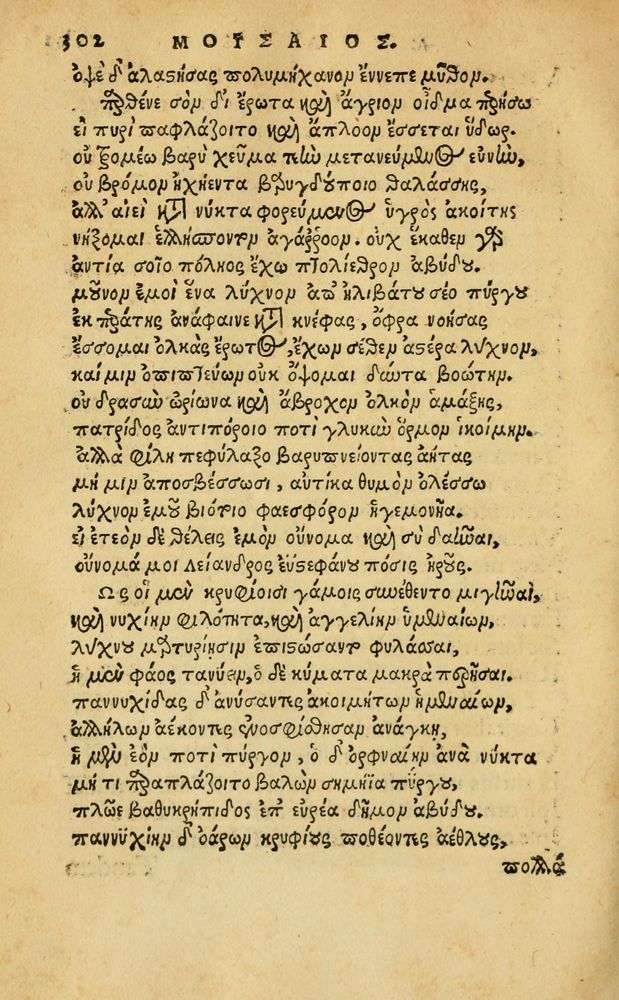 302 ΜΟΥΣΑΙΟΣ.
ὀψὲ δ' ἀλαστήσας πολυμήχανον ἔννεπε μῦθον.
Παρθένε σὸν δι' ἔρωτα καὶ ἄγριον οἶδμα περήσω
εἰ πυρὶ παφλάζοιτο καὶ ἄπλοον ἔσσεται ὕδωρ.
οὐ τρομέω βαρὺ χεῦμα τεὴν μετανεύμενος εὐνὴν,
οὐ βρόμον ἠχήεντα βαρυγδούποιο θαλάσσης,
ἀλλ' αἰεὶ κατὰ νύκτα φορεύμενος ὑγρὸς ἀκοίτης
νήξομαι ἑλλήσποντον ἀγάρροον. οὐχ ἕκαθεν γὰρ
ἀντία σοῖο πόληος ἔχω πτολίεθρον ἀβύδου.
μοῦνον ἐμοὶ ἕνα λύχνον ἀπ' ἠλιβάτου σέο πύργου
ἐκ περάτης ἀνάφαινε κατὰ κνέφας, ὄφρα νοήσας
ἔσσομαι ὁλκὰς ἔρωτος, ἔχων σέθεν ἀστέρα λύχνον,
καί μιν ὀπιπτεύων οὐκ ὄψομαι δύντα βοώτην.
οὐ θρασὺν ὠρίωνα καὶ ἄβροχον ὁλκὸν ἁμάξης,
πατρίδος ἀντιπόροιο ποτὶ γλυκὺν ὅρμον ἱκοίμην.
ἀλλὰ φίλη πεφύλαξο βαρυπνείοντας ἀήτας
μή μιν ἀποσβέσσωσι, αὐτίκα θυμὸν ὀλέσσω
λύχνον ἐμοῦ βιότοιο φαεσφόρον ἡγεμονῆα.
εἰ ἐτεὸν δὲ θέλεις ἐμὸν οὔνομα καὶ σὺ δαῆναι,
οὔνομά μοι Λείανδρος ἐϋστεφάνου πόσις ἡροῦς.
Ὣς οἱ μὲν κρυφίοισι γάμοις συνέθεντο μιγῆναι,
καὶ νυχίην φιλότητα, καὶ ἀγγελίην ὑμεναίων,
λύχνου μαρτυρίησιν ἐπιστώσαντο φυλάσσειν,
ἡ μὲν φάος τανύειν, ὁ δὲ κύματα μακρὰ περῆσαι.
παννυχίδας δ' ἀνύσαντες ἀκοιμήτων ὑμεναίων,
ἀλλήλων ἀέκοντες ἐνοσφίσθησαν ἀνάγκῃ,
ἡ μὲν ἑὸν ποτὶ πύργον, ὁ δ' ὀρφναίην ἀνὰ νύκτα
μή τι παραπλάζοιτο βαλὼν σημήϊα πύργου,
πλῶε βαθυκρήπιδος ἐπ' εὐρέα δῆμον ἀβύδου.
παννυχίων δ' ὀάρων κρυφίους ποθέοντες ἀέθλους,
πολλά